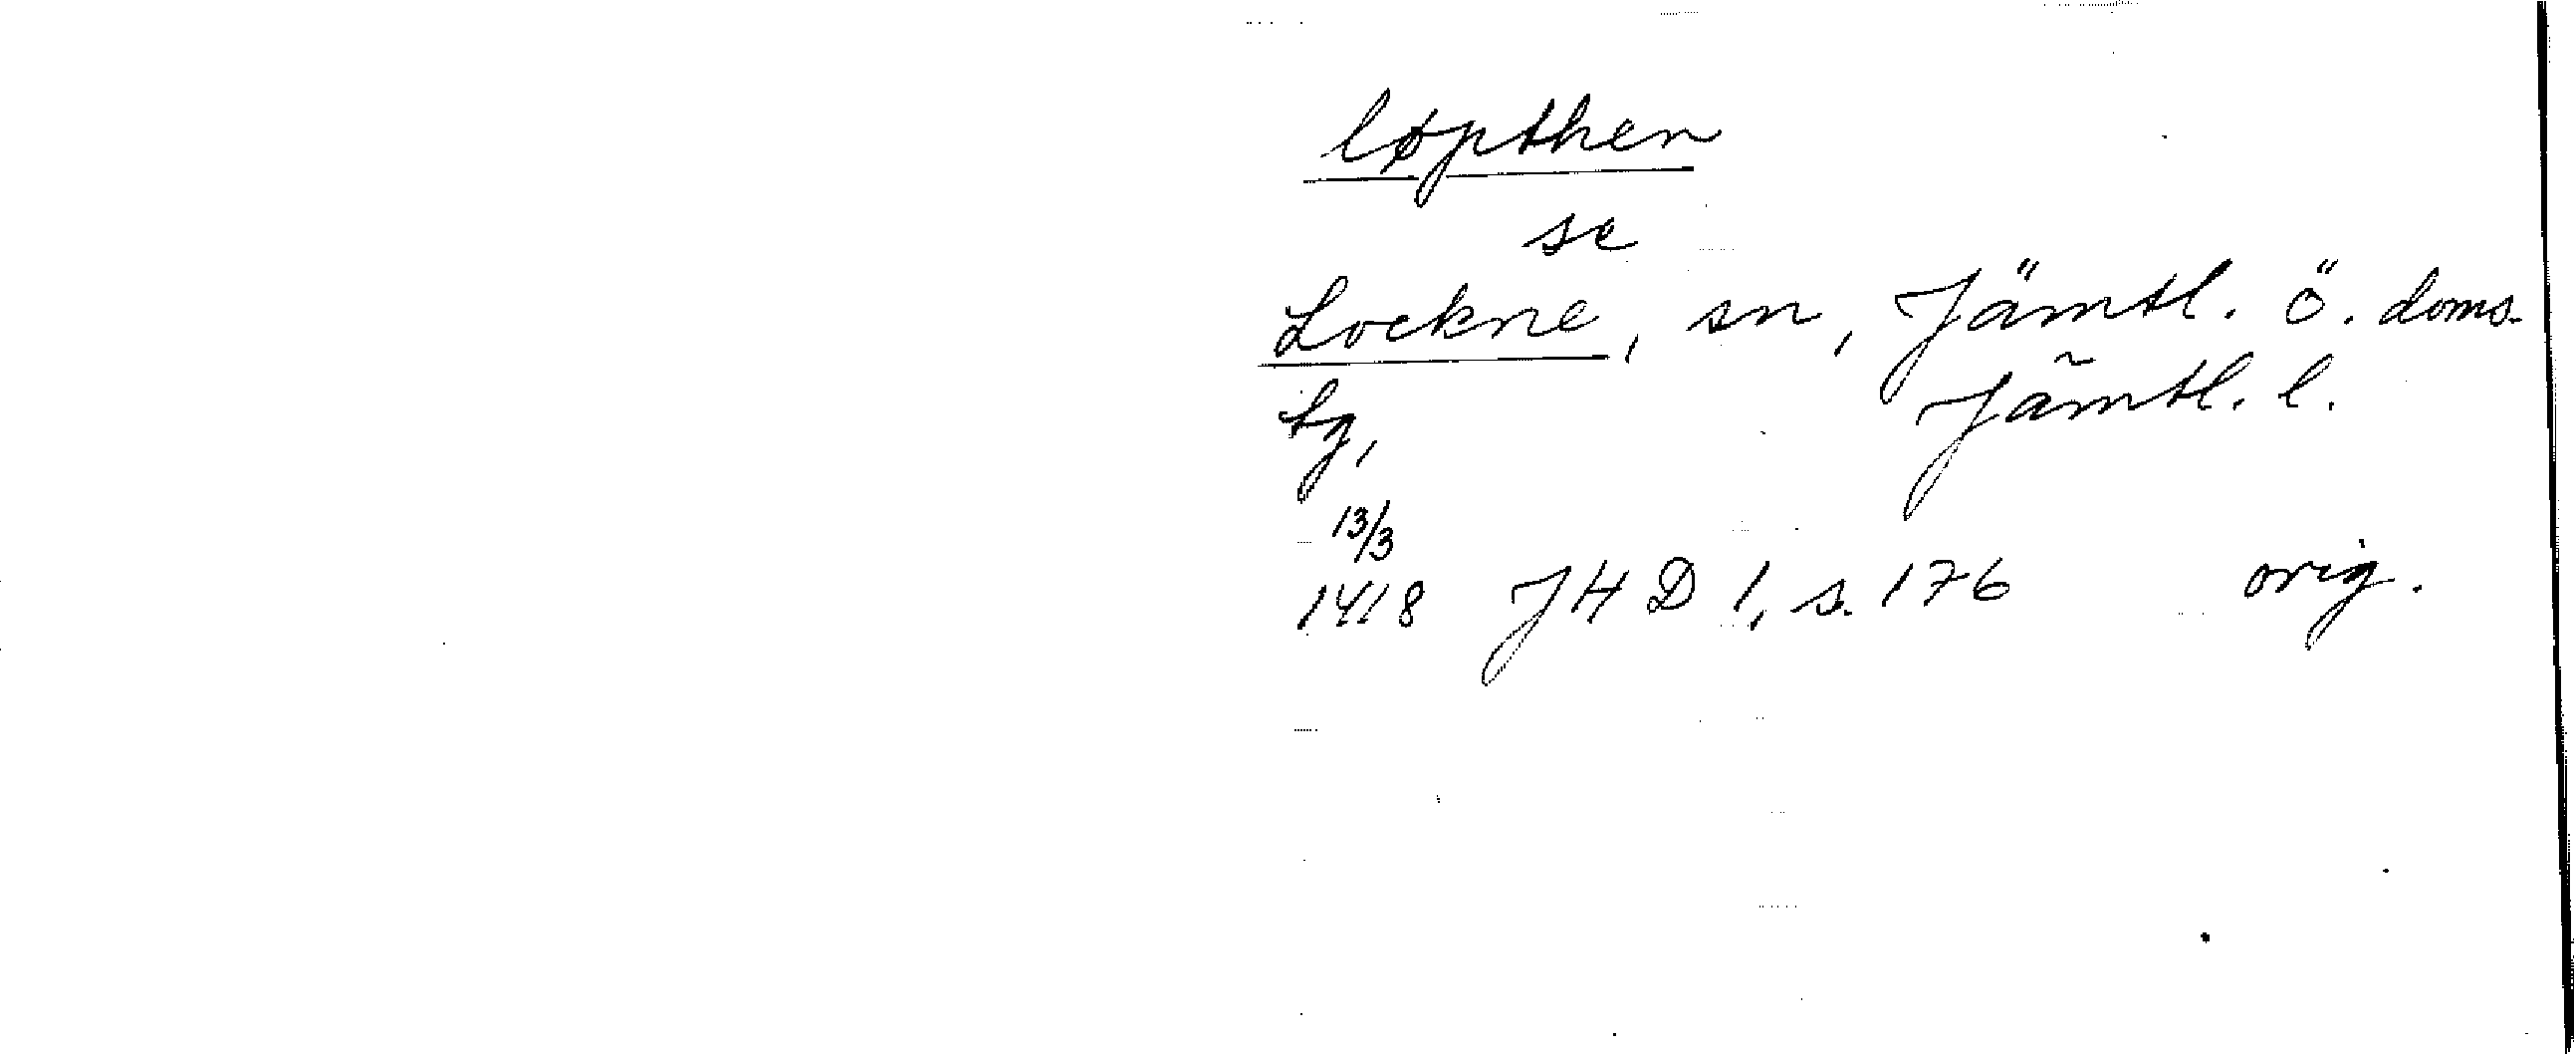 løpthen
se
Lockne, sn, Jämtl. ö. doms.
tg, Jämtl. l.
13/3
1418 JHD 1, s. 176 orig.